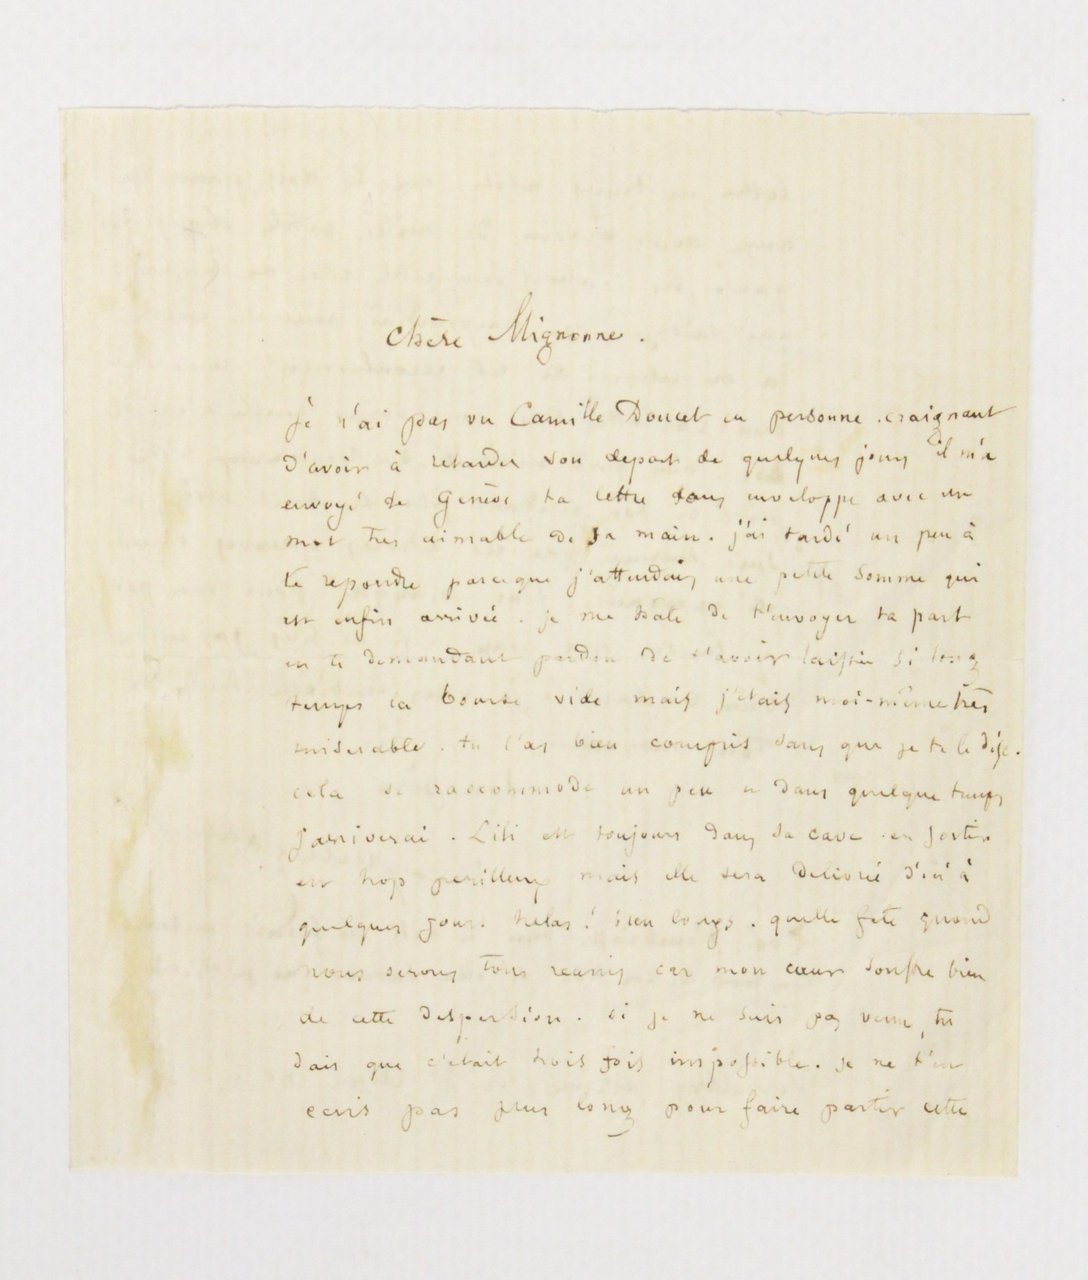 Chère Mignonne.
je n'ai pas vu Camille Doucet en personne. craignant
d'avoir à retarder son depart de quelques jours il m'a
envoyé de Genève ta lettre sous enveloppe avec un
mot tres aimable de sa main. j'ai tardé un peu à
te repondre parceque j'attendais une petite somme qui
est enfin arrivée. je me hate de t'envoyer ta part
en te demandant pardon de t'avoir laissée si long
temps la bourse vide mais j'étais moi-même très
miserable. tu l'as bien compris sans que je te le dise.
cela se raccommode un peu et dans quelque temps
j'arriverai. Lili est toujours dans sa cave. en sortir
est trop perilleux mais elle sera delivré d'ici à
quelques jours helas! bien longs. quelle fete quand
nous serons tous reunis car mon cœur souffre bien
de cette dispersion. si je ne suis pas venu, tu
sais que c'était trois fois impossible. je ne t'en
ecris pas plus long pour faire partir cette